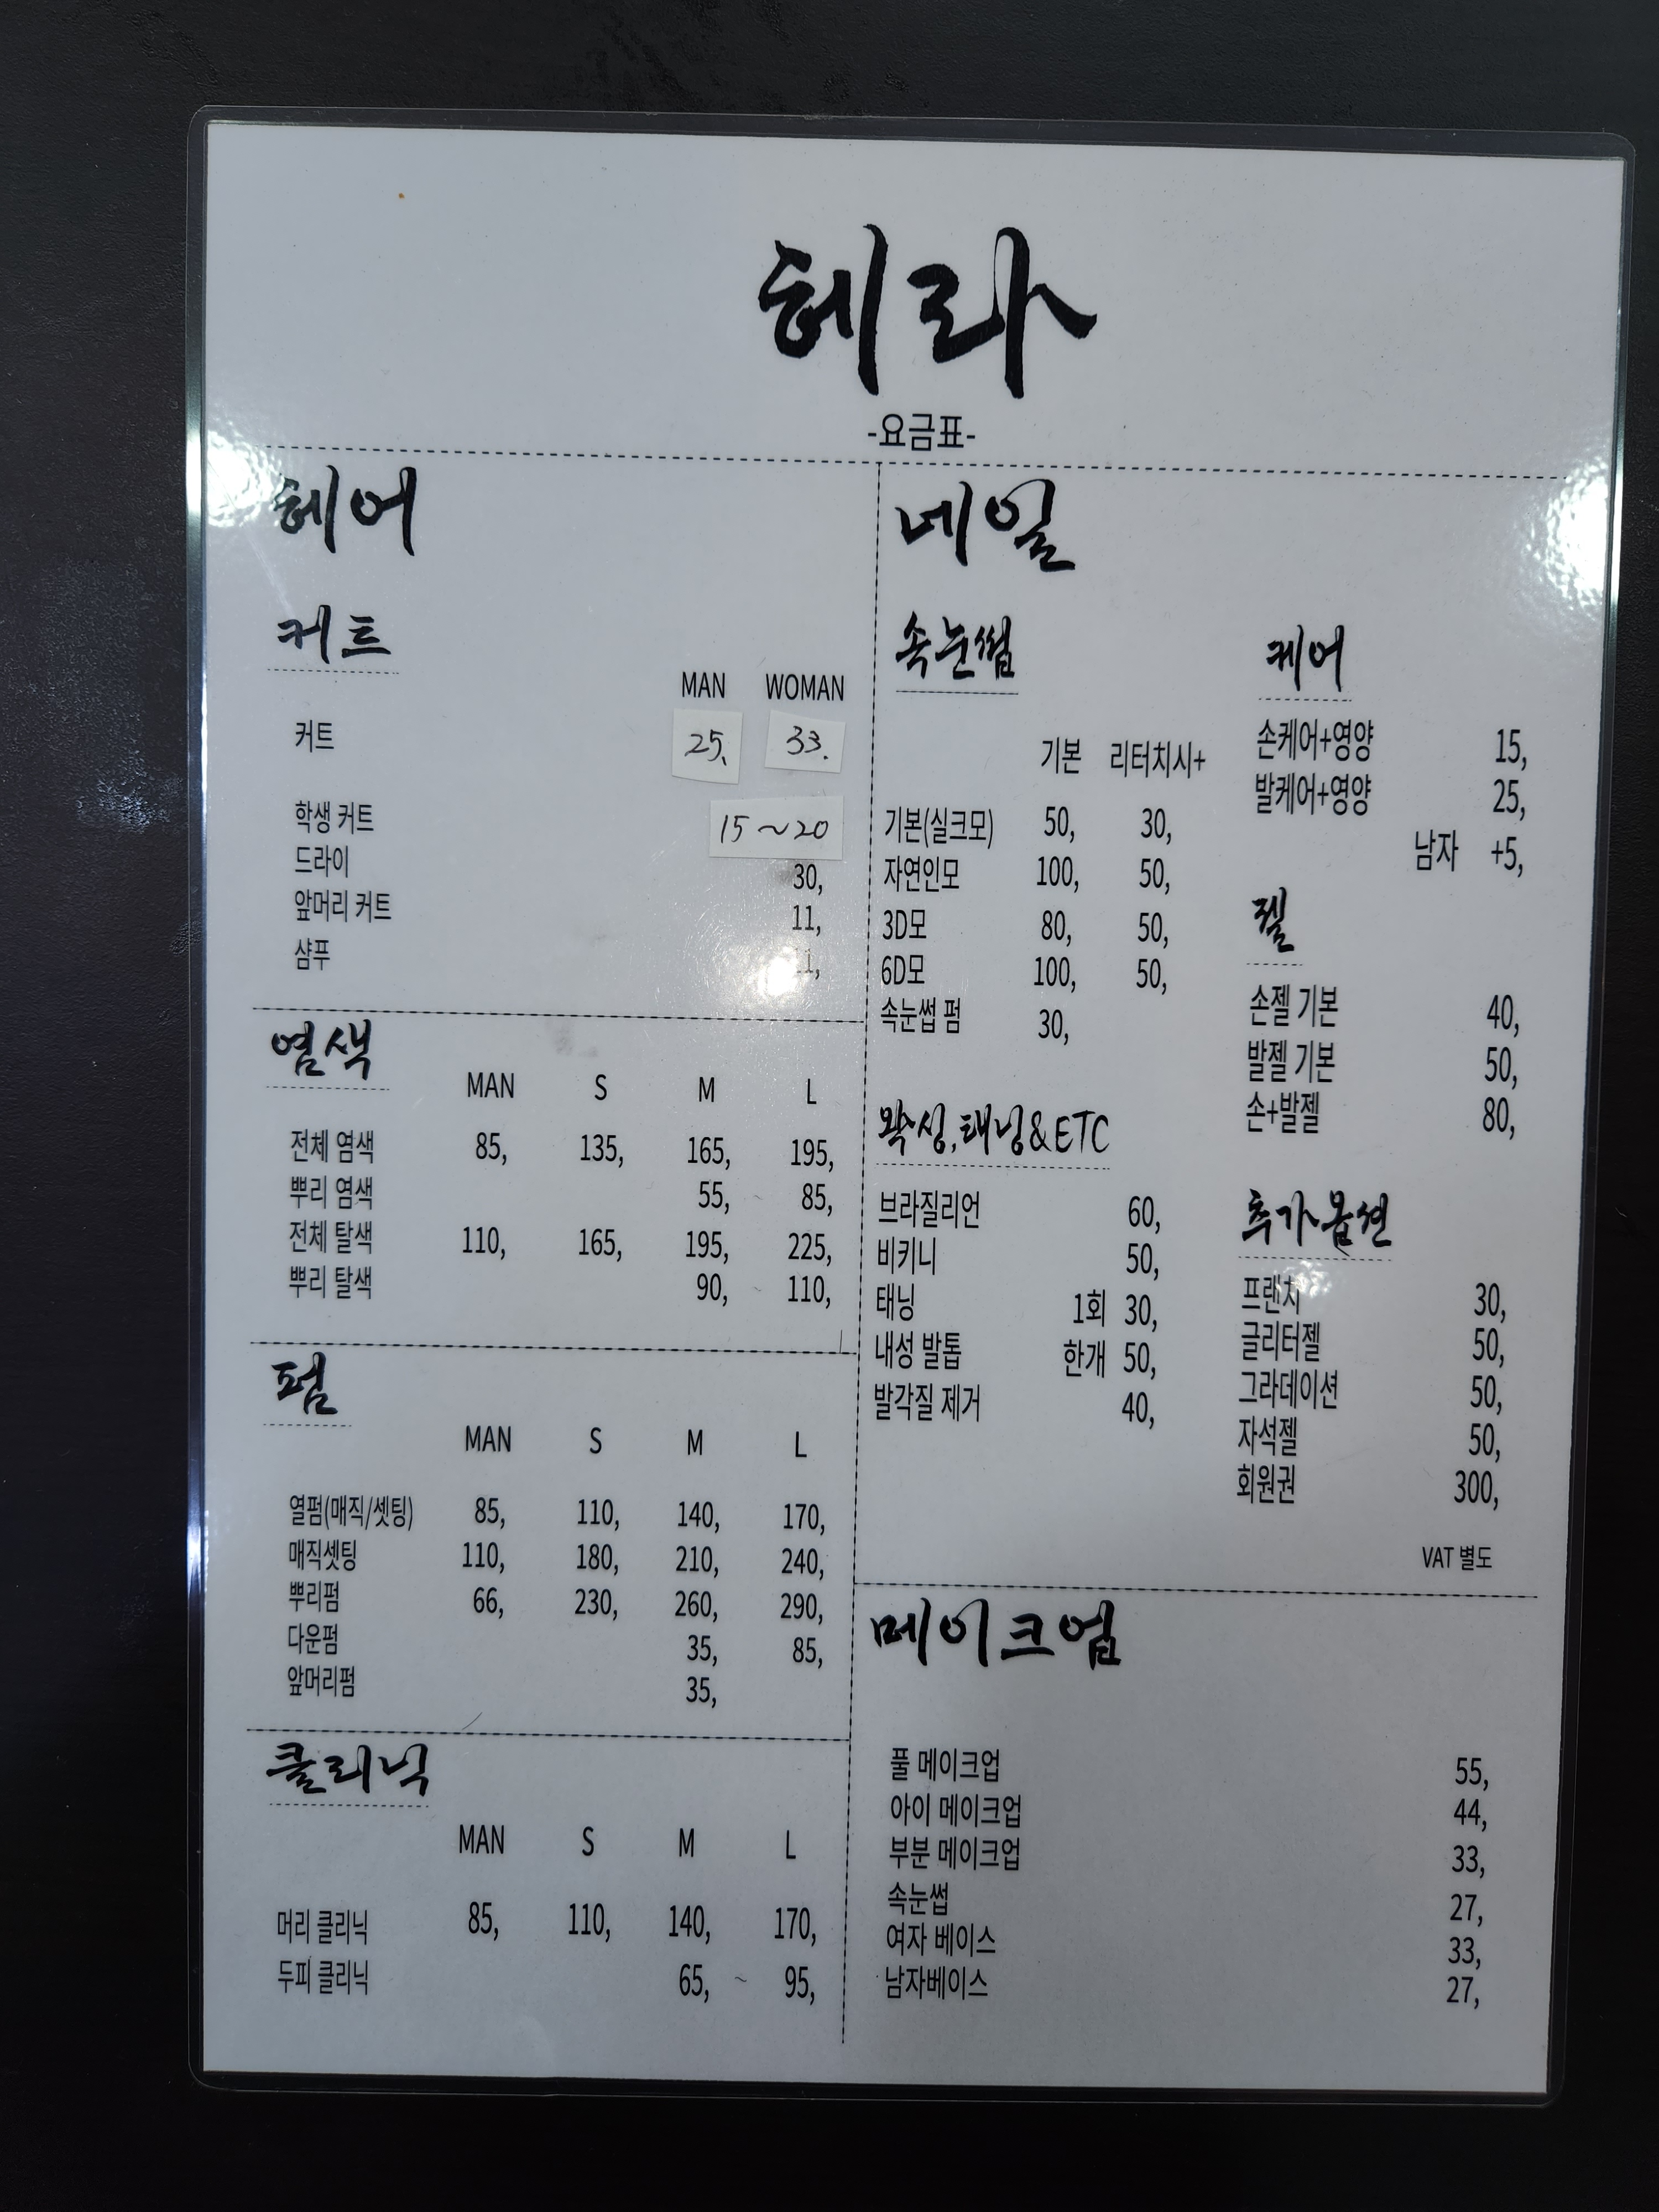 헤라
-요금표-
헤어
커트
MAN WOMAN
커트 25, 33.
학생 커트 15~20
드라이 30,
앞머리 커트 11,
샴푸
염색
MAN S M L
전체 염색 85, 135, 165, 195,
뿌리 염색 55, ~ 85,
전체 탈색 110, 165, 195, 225,
뿌리 탈색 90, ~ 110,
펌
MAN S M L
열펌(매직/셋팅) 85, 110, 140, 170,
매직셋팅 110, 180, 210, 240,
뿌리펌 66, 230, 260, 290,
다운펌 35, 85,
앞머리펌 35,
클리닉
MAN S M L
머리 클리닉 85, 110, 140, 170,
두피 클리닉 65, ~ 95,
네일
속눈썹
기본 리터치시+
기본(실크모) 50, 30,
자연인모 100, 50,
3D모 80, 50,
6D모 100, 50,
속눈썹 펌 30,
왁싱,태닝&ETC
브라질리언 60,
비키니 50,
태닝 1회 30,
내성 발톱 한개 50,
발각질 제거 40,
케어
손케어+영양 15,
발케어+영양 25,
남자 +5,
젤
손젤 기본 40,
발젤 기본 50,
손+발젤 80,
추가옵션
프랜치 30,
글리터젤 50,
그라데이션 50,
자석젤 50,
회원권 300,
VAT 별도
메이크업
풀 메이크업 55,
아이 메이크업 44,
부분 메이크업 33,
속눈썹 27,
여자 베이스 33,
남자베이스 27,